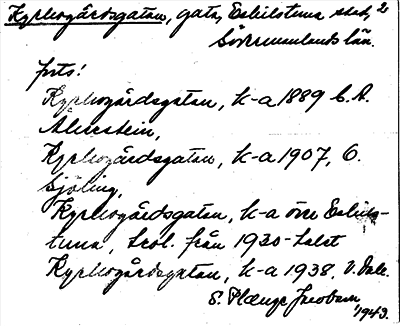 Kyrkogårdsgatan, gata, Eskilstuna stad, 2
Södermanlands län.
forts:
Kyrkogårdsgatan, k-a 1889 C. A.
Ahlerstein,
Kyrkogårdsgatan, k-a 1907, O.
Sjöling,
Kyrkogårdsgatan, k-a över Eskils-
tuna, trol. från 1920-talet
Kyrkogårdsgatan, k-a 1938. V. Dahl.
S. Plænge Jacobson
1943.